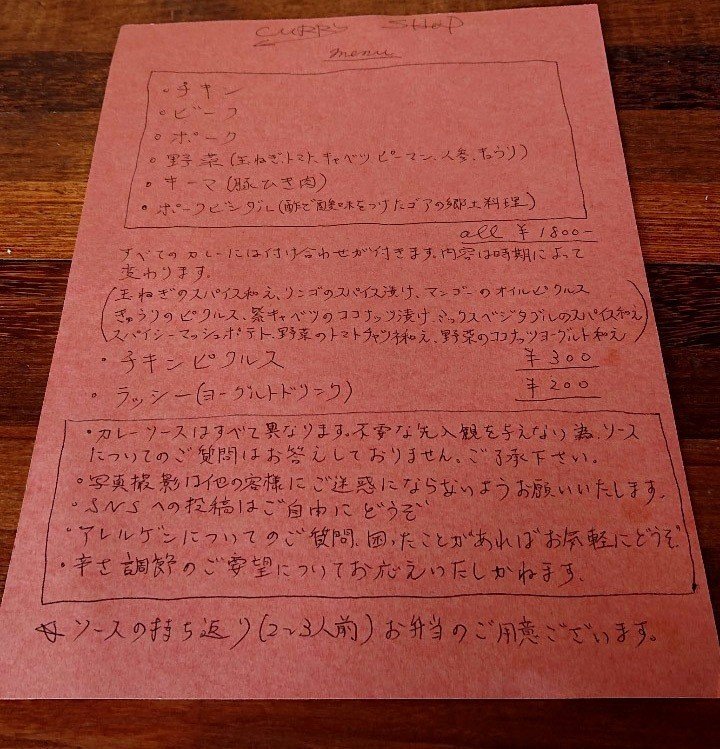 CURRY SHOP
menu
・チキン
・ビーフ
・ポーク
・野菜(玉ねぎ、トマト、キャベツ、ピーマン、人参、きゅうり)
・キーマ(豚ひき肉)
・ポークビンダル(酢で酸味をつけたゴアの郷土料理)
all ¥1800-
すべてのカレーには付け合わせが付きます。内容は時期によって
変わります。
(玉ねぎのスパイス和え、リンゴのスパイス漬け、マンゴーのオイルピクルス
きゅうりのピクルス、紫キャベツのココナッツ漬け、ミックスベジタブルのスパイス和え
スパイシーマッシュポテト、野菜のトマトチャツネ和え、野菜のココナッツヨーグルト和え)
・チキンピクルス ¥300
・ラッシー(ヨーグルトドリンク) ¥200
・カレーソースはすべて異なります。不要な先入観を与えない為、ソース
についてのご質問はお答えしておりません。ご了承下さい。
・写真撮影は他の客様にご迷惑にならないようお願いいたします。
・SNSへの投稿はご自由にどうぞ
・アレルゲンについてのご質問、困ったことがあればお気軽にどうぞ
・辛さ調節のご要望についてお応えいたしかねます。
☆ソースの持ち返り(2〜3人前)お弁当のご用意ございます。